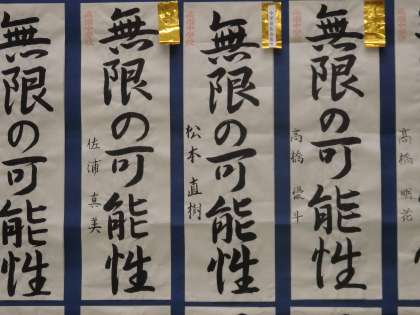 無限の可能性
無限の可能性
佐浦真美
無限の可能性
松本直樹
無限の可能性
高橋
斗
高橋明花